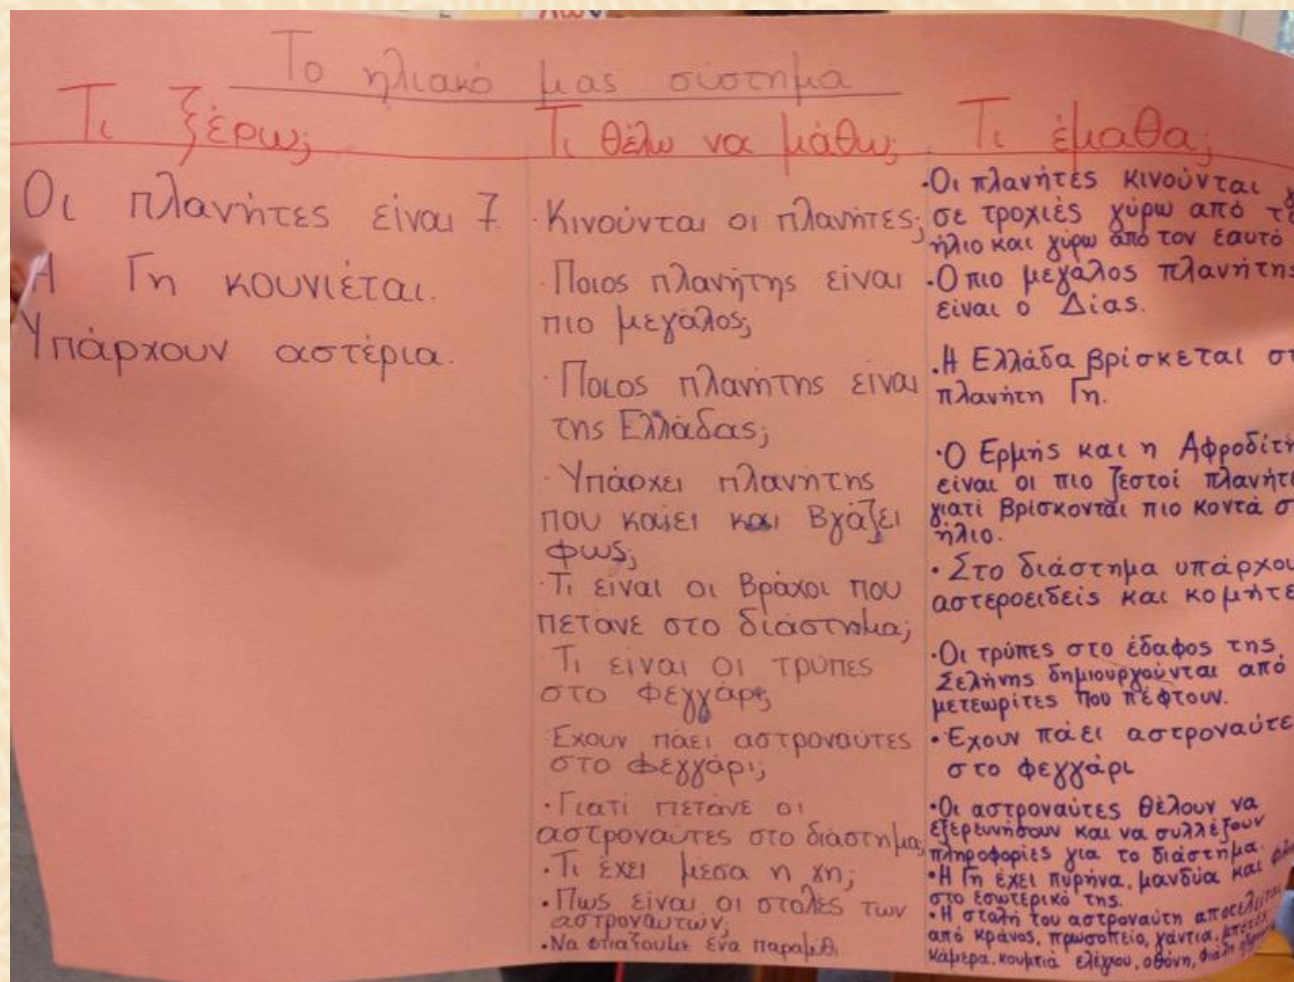 Το ηλιακό μας σύστημα
Τι ξέρω;
Οι πλανήτες είναι 7
Η Γη κουνιέται.
Υπάρχουν αστέρια.
Τι θέλω να μάθω;
·Κινούνται οι πλανήτες;
·Ποιος πλανήτης είναι
πιο μεγάλος;
·Ποιος πλανήτης είναι
της Ελλάδας;
·Υπάρχει πλανήτης
που καίει και βγάζει
φως;
·Τι είναι οι βράχοι που
πετάνε στο διάστημα;
·Τι είναι οι τρύπες
στο φεγγάρι;
·Έχουν πάει αστροναύτες
στο φεγγάρι;
·Γιατί πετάνε οι
αστροναύτες στο διάστημα;
·Τι έχει μέσα η χη;
·Πως είναι οι στολές των
αστροναυτών;
·Να φτιάξουμε ένα παραμύθι.
Τι έμαθα;
·Οι πλανήτες κινούνται
σε τροχιές γύρω από το
ήλιο και γύρω από τον εαυτό
·Ο πιο μεγάλος πλανήτης
είναι ο Δίας.
·Η Ελλάδα βρίσκεται στ
πλανήτη Γη.
·Ο Ερμής και η Αφροδίτη
είναι οι πιο ζεστοί πλανήτε
γιατί βρίσκονται πιο κοντά σ
ήλιο.
·Στο διάστημα υπάρχου
αστεροειδείς και κομήτε
·Οι τρύπες στο έδαφος της
Σελήνης δημιουργούνται από
μετεωρίτες που πέφτουν.
·Έχουν πάει αστροναύτε
στο φεγγάρι
·Οι αστροναύτες θέλουν να
εξερευνήσουν και να συλλέξουν
πληροφορίες για το διάστημα.
·Η Γη έχει πυρήνα, μανδύα και
στο εσωτερικό της.
·Η στολή του αστροναύτη αποτελείται
από κράνος, προσωπείο, γάντια, μπότες
κάμερα, κουμπιά ελέγχου, οθόνη, φιάλη